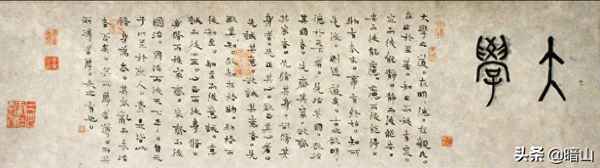 大學
大學之道。在明明德。在親
民。在止於至善。知止而后有
定。定而后能靜。靜而后能安。
安而后能慮。慮而后能得。
物有本末。事有終始。知所
先後。則近道矣。古之欲明
明德於天下者。先治其國。欲治
其國者。先齊其家。欲齊
其家者。先修其身。欲修其
身者。先正其心。欲正其心者。先
誠其意。欲誠其意者。先
致其知。致知在格物。物格而
后知至。知至而后意誠。意
誠而后心正。心正而后身
修。身修而后家齊。家齊而后
國治。國治而后天下平。自天
子以至於庶人。壹是皆以
修身為本。其本亂而末治
者否矣。其所厚者薄。而其
所薄者厚。未之有也。
头条 @暗山